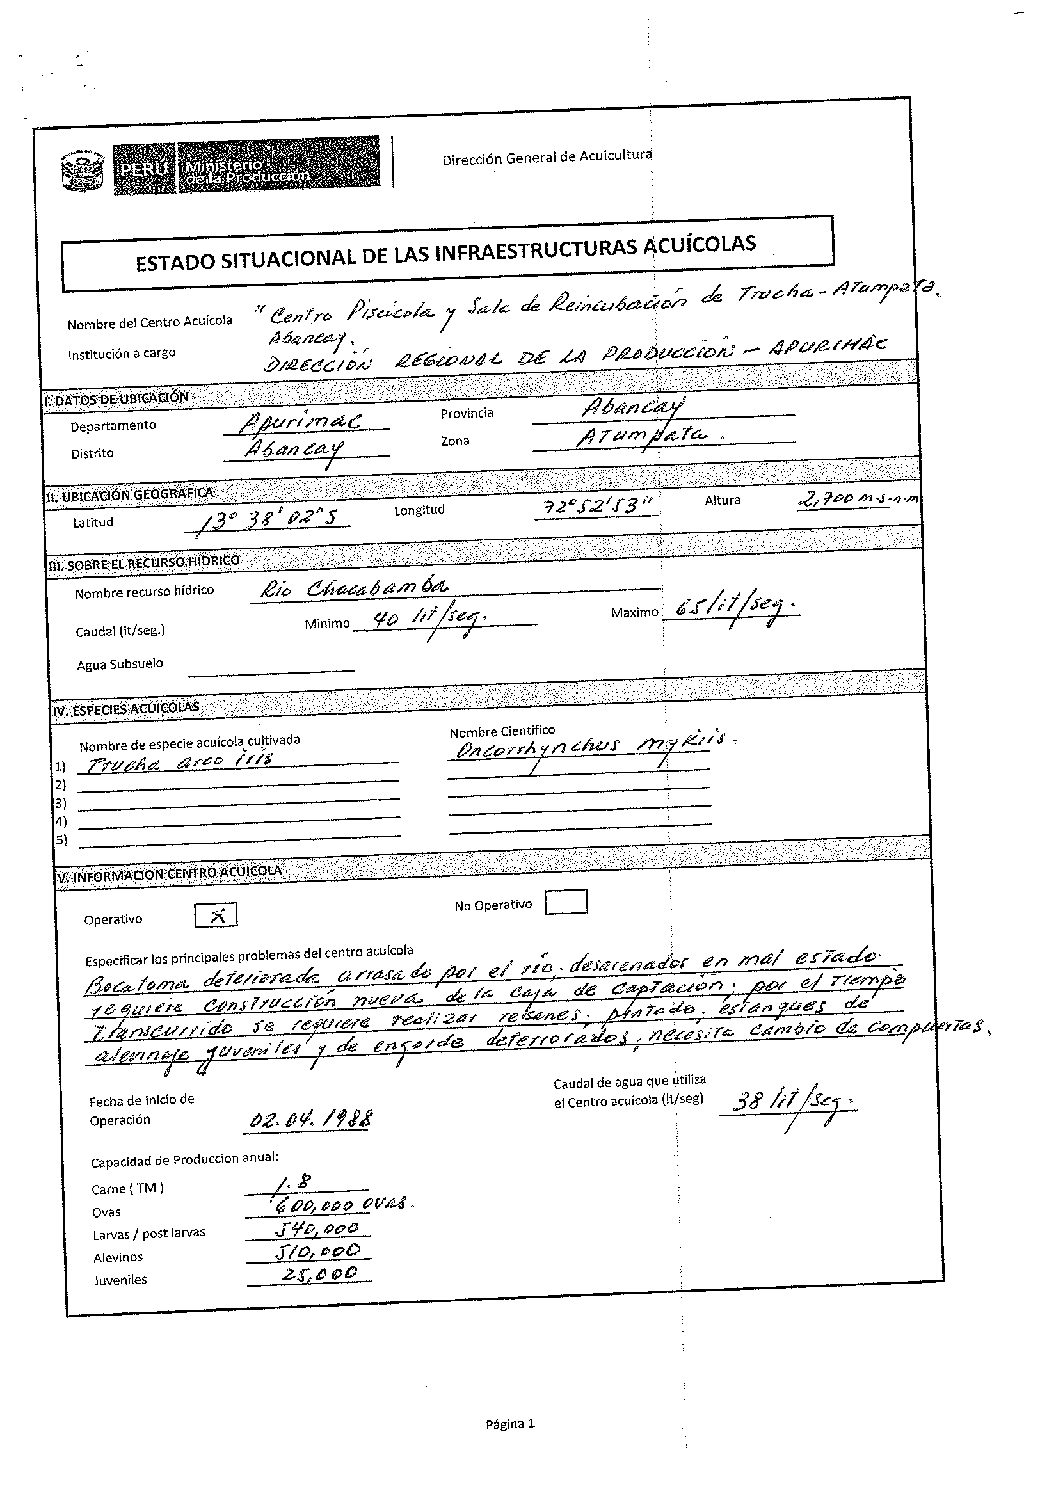 PERÚ Ministerio de la Producción
Dirección General de Acuicultura
ESTADO SITUACIONAL DE LAS INFRAESTRUCTURAS ACUÍCOLAS
Nombre del Centro Acuícola "Centro Piscícola y Sala de Reincubación de Trucha - ATumpata.
Abancay.
Institución a cargo DIRECCIÓN REGIONAL DE LA PRODUCCIÓN - APURIMAC
I. DATOS DE UBICACIÓN
Departamento Apurímac Provincia Abancay
Distrito Abancay Zona ATumpata.
II. UBICACIÓN GEOGRAFICA
Latitud 13° 38' 02" S Longitud 72° 52' 53" Altura 2,700 m.s.n.m
III. SOBRE EL RECURSO HIDRICO
Nombre recurso hídrico Rio Chacabamba
Caudal (lt/seg.) Minimo 40 lit/seg. Maximo 65 lit/seg.
Agua Subsuelo
IV. ESPECIES ACUICOLAS
Nombre de especie acuícola cultivada Nombre Cientifico
1) Trucha arco iris Oncorrhynchus mykiis.
2)
3)
4)
5)
V. INFORMACION CENTRO ACUICOLA
Operativo X No Operativo
Especificar los principales problemas del centro acuícola
Bocatoma deteriorada arrasado por el río, desarenados en mal estado.
requiere construcción nueva de la caja de captación; por el Tiempo
Transcurrido se requiere realizar resanes; pintado. estanques de
alevinaje juveniles y de engorde deteriorados, necesita cambio de compuertas.
Fecha de inicio de
Operación 02. 04. 1988
Caudal de agua que utiliza
el Centro acuicola (lt/seg) 38 lit/seg.
Capacidad de Produccion anual:
Carne ( TM ) 1.8
Ovas 600,000 OVAS.
Larvas / post larvas 540,000
Alevinos 510,000
Juveniles 25,000
Página 1